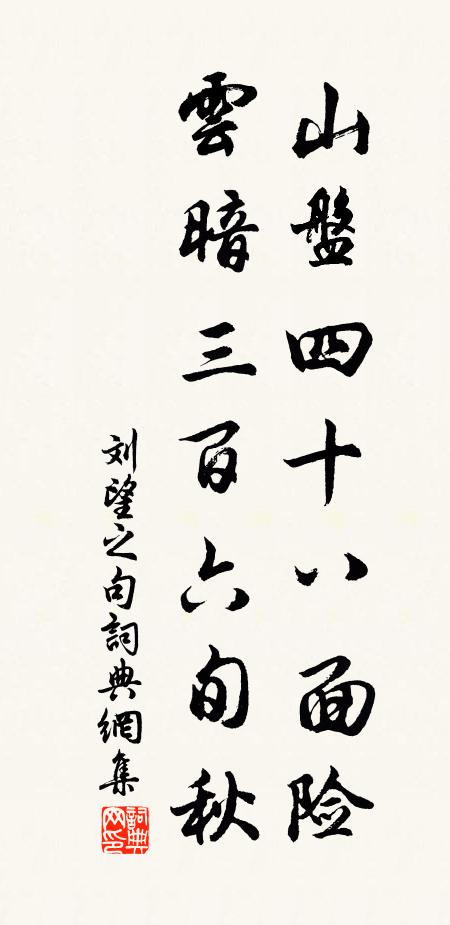 山盤四十八面险
雲暗三百六旬秋
刘望之句詞典網集
詞典
网印